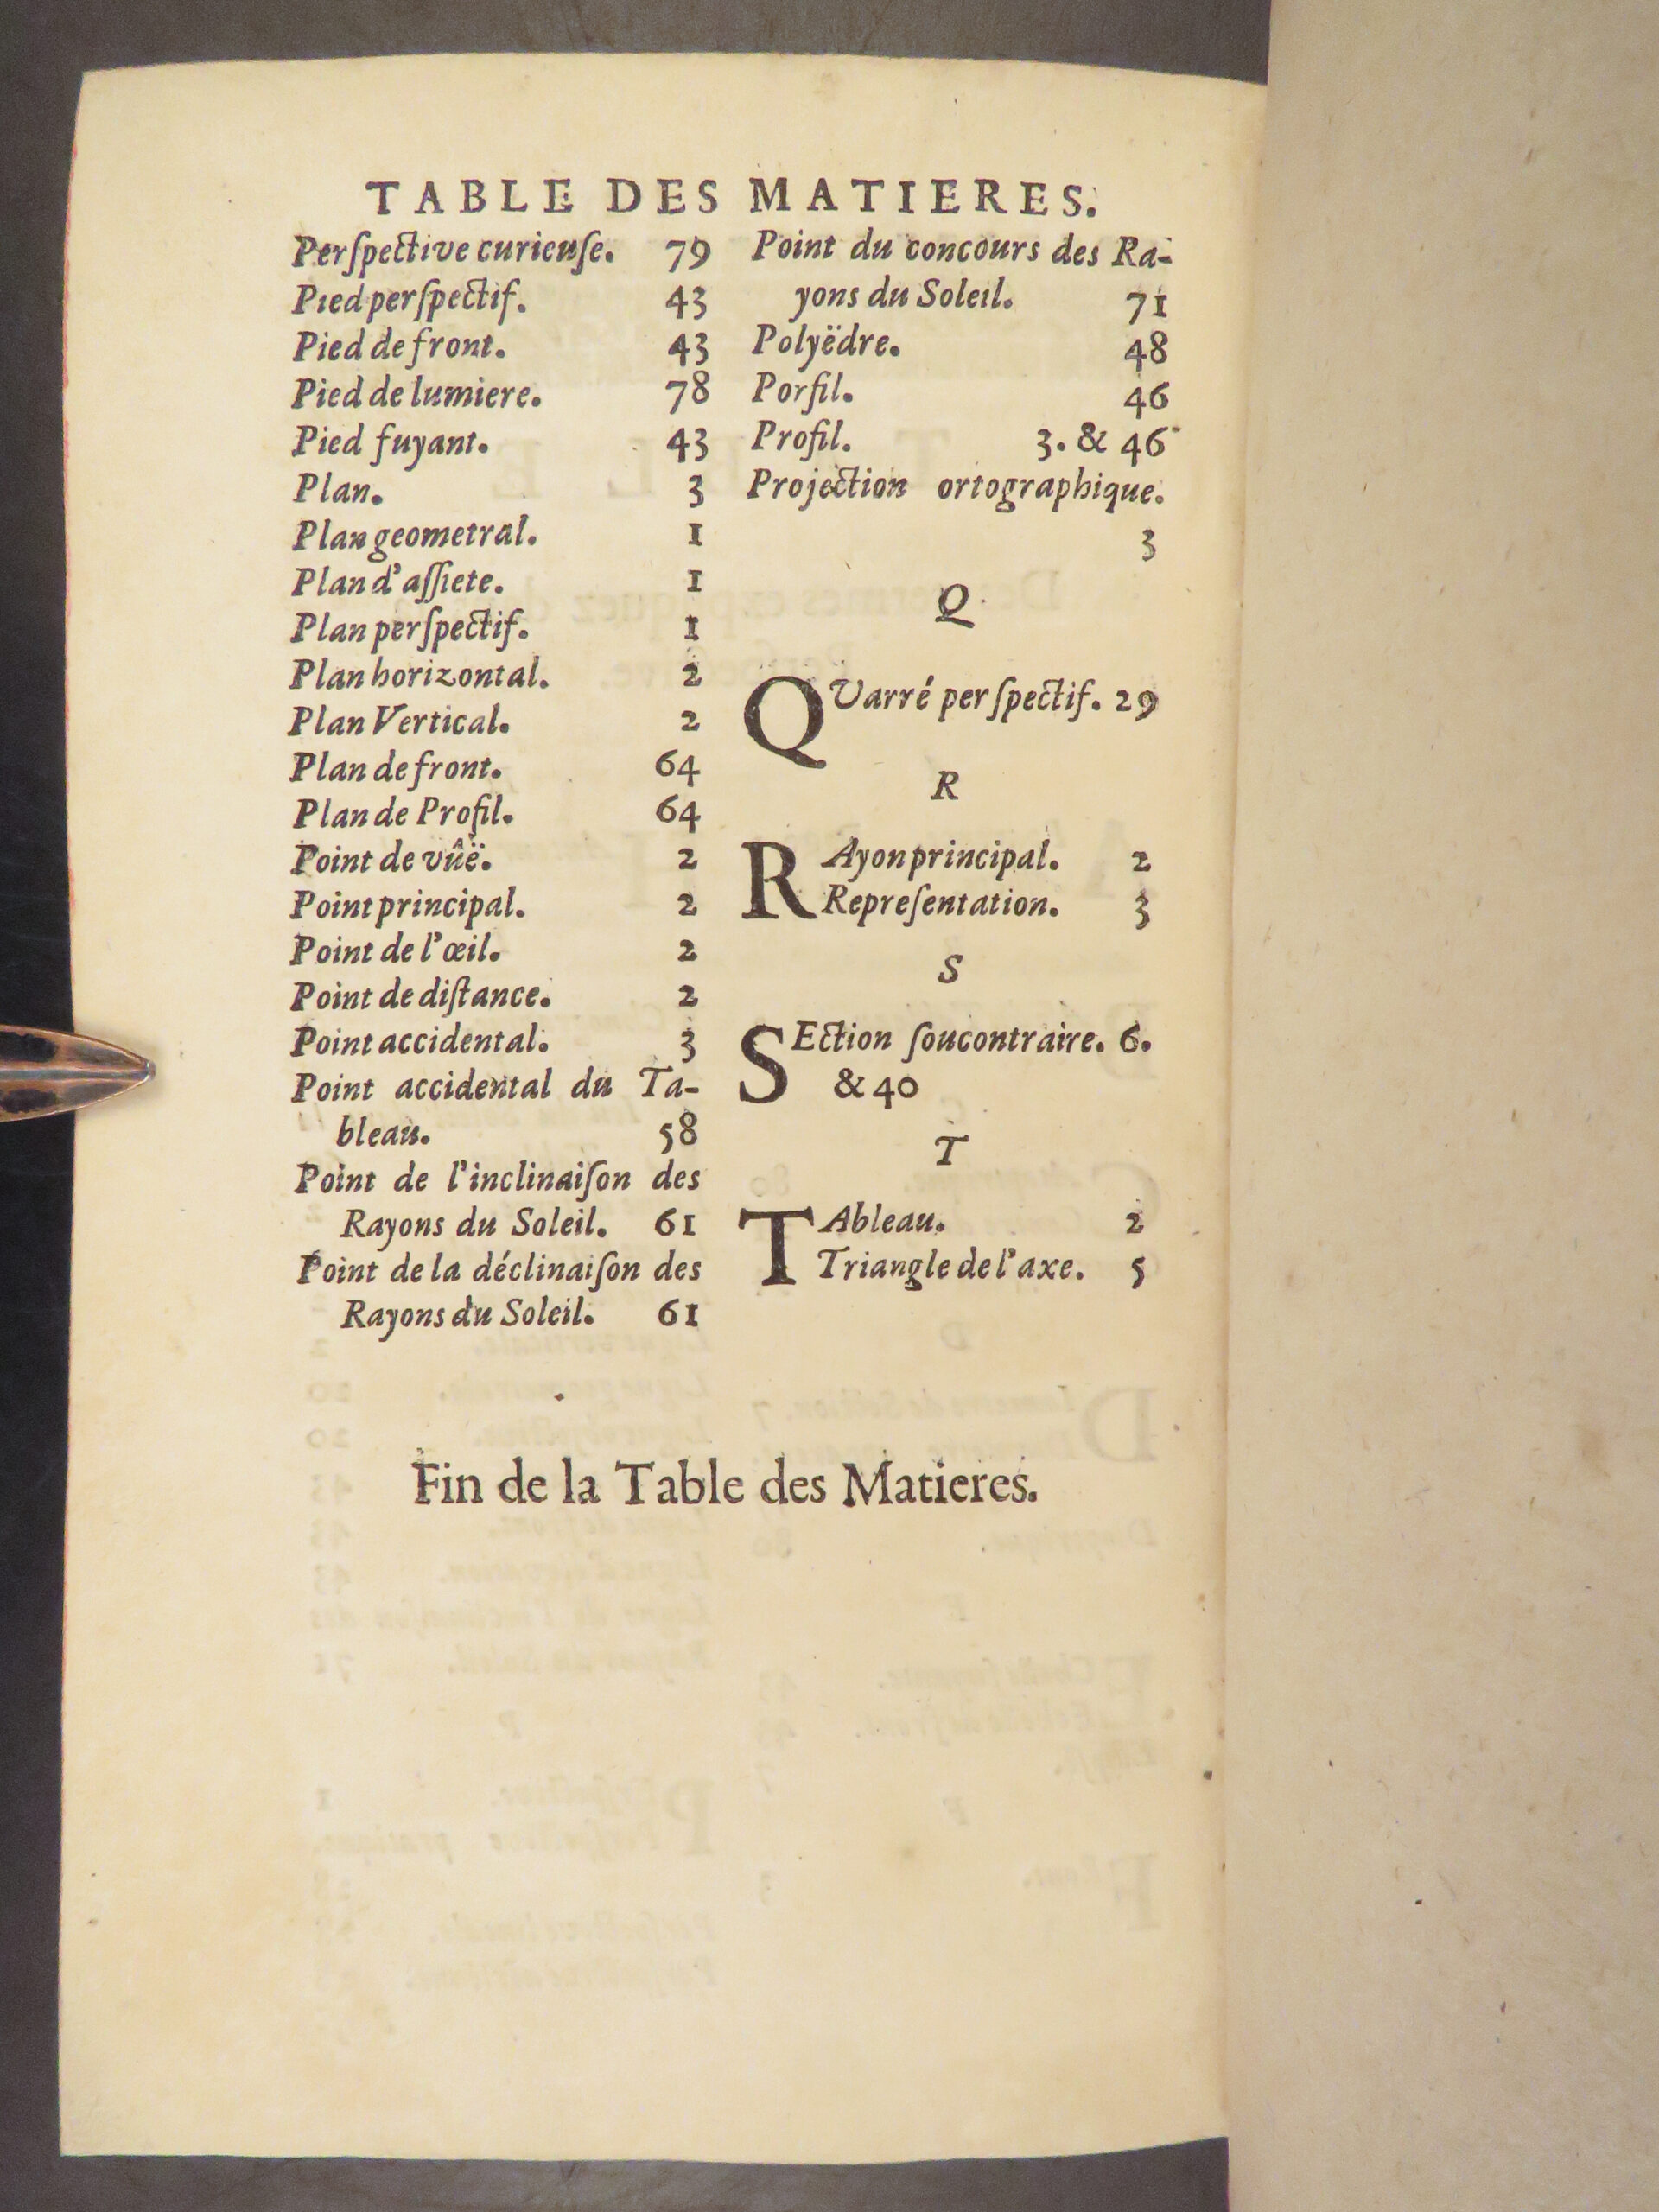 TABLE DES MATIERES.
Perſpective curieuſe. 79
Pied perſpectif. 43
Pied de front. 43
Pied de lumiere. 78
Pied fuyant. 43
Plan. 3
Plan geometral. 1
Plan d'aſſiete. 1
Plan perſpectif. 1
Plan horizontal. 2
Plan Vertical. 2
Plan de front. 64
Plan de Profil. 64
Point de vûë. 2
Point principal. 2
Point de l'œil. 2
Point de diſtance. 2
Point accidental. 3
Point accidental du Ta-
bleau. 58
Point de l'inclinaiſon des
Rayons du Soleil. 61
Point de la déclinaiſon des
Rayons du Soleil. 61
Point du concours des Ra-
yons du Soleil. 71
Polyëdre. 48
Porfil. 46
Profil. 3. & 46
Projection ortographique.
3
Q
QVarré perſpectif. 29
R
RAyon principal. 2
Repreſentation. 3
S
SEction ſoucontraire. 6.
& 40
T
TAbleau. 2
Triangle de l'axe. 5
Fin de la Table des Matieres.